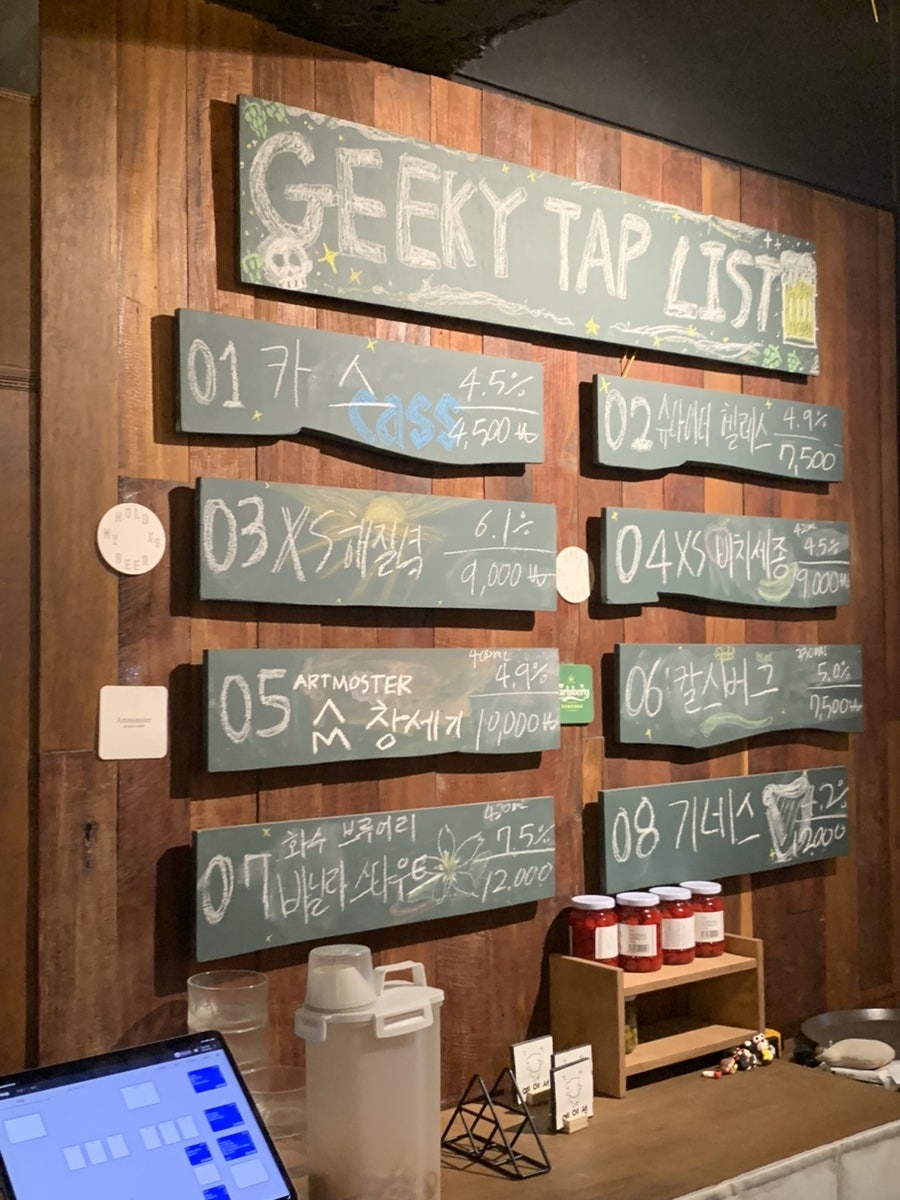 GEEKY TAP LIST
01 카스 4.5%
cass 4,500₩
02 슈나이더 헬레스 4.9%
7,500
HOLD
MY XS
BEER
03 XS 해질녘 6.1%
9,000₩
04 XS 비치세종 4.5%
9,000₩
05 ARTMOSTER 4.9%
창세기 10,000₩
Artmonster
Carlsberg
06 칼스버그 5.0%
7,500₩
07 화수 브루어리 420ml
바닐라 스타우트 7.5%
12.000
08 기네스 4.2%